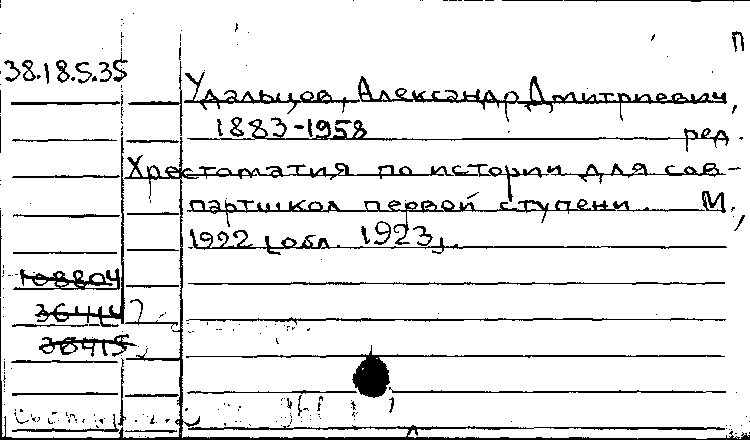 П
38.18.5.35
Удальцов, Александр Дмитриевич,
1883-1958 ред.
Хрестоматия по истории для сов-
партшкол первой ступени. М.,
1922 [обл. 1923].
108804
36414
36415